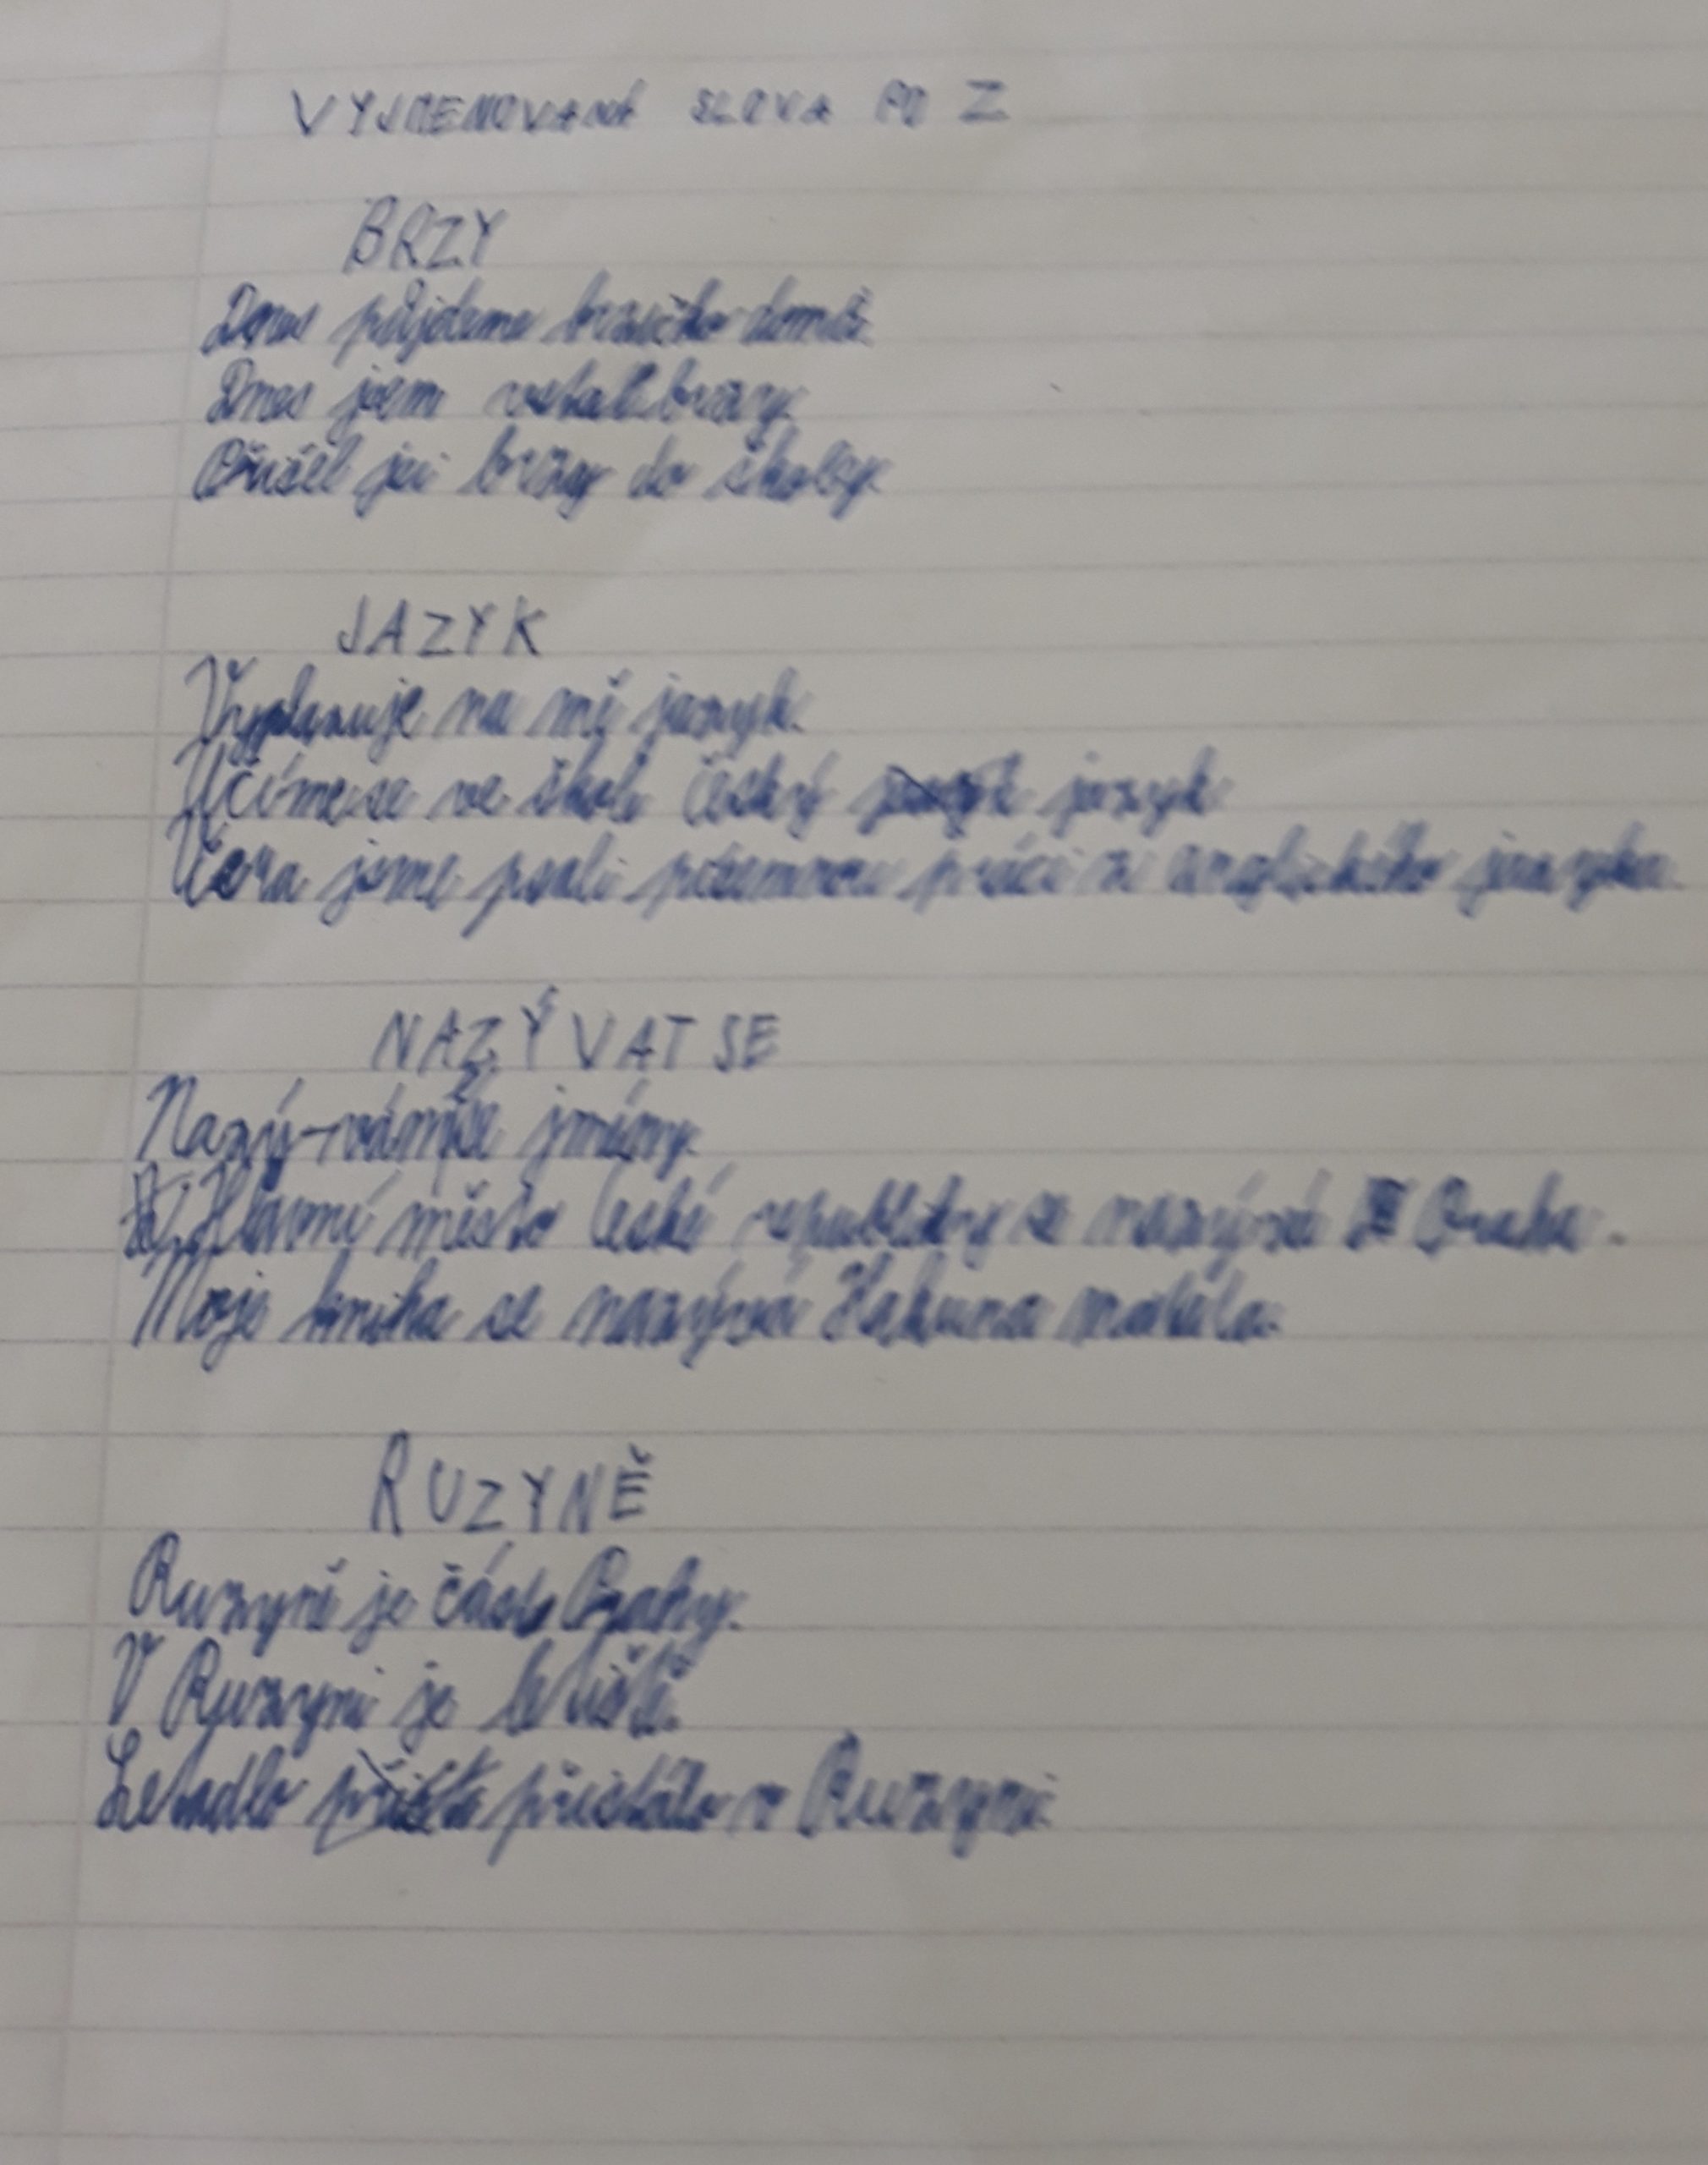 VYJMENOVANÁ SLOVA PO Z
BRZY
Dnes půjdeme brzičko domů.
Dnes jsem vstal brzy.
Přišel jsi brzy do školy.
JAZYK
Vyplazuje na mě jazyk.
Učíme se ve škole český jazyk jazyk
Včera jsme psali písemnou práci z anglického jazyka.
NAZÝVAT SE
Nazý-vám se jmény.
Hlavní město České republiky se nazývá Praha.
Moje kniha se nazývá Hakuna matata.
RUZYNĚ
Ruzyně je část Prahy.
V Ruzyni je letiště.
Letadlo přistálo v Ruzyni.